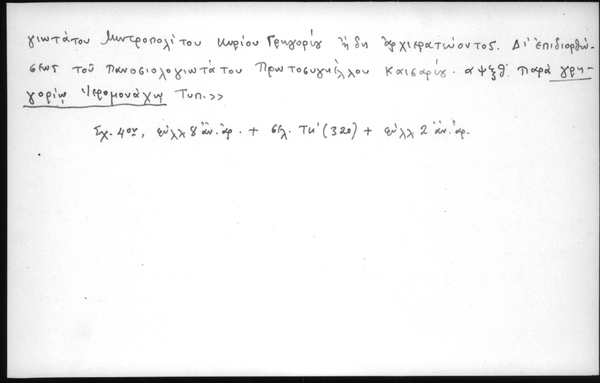 γιωτάτου Μητροπολίτου Κυρίου Γρηγορίου ἤδη ἀρχιερατεύοντος. Δι' ἐπιδιορθώ-
σεως τοῦ Πανοσιολογιωτάτου Πρωτοσυγκέλλου Καισαρίου. αψξθ'. Παρὰ Γρη-
γορίῳ Ἱερομονάχῳ Τυπ.>>
Σχ. 4ον, φύλλ 8 ἄν. ἀρ. + σελ. τκ' (320) + φύλλ 2 ἄν. ἀρ.